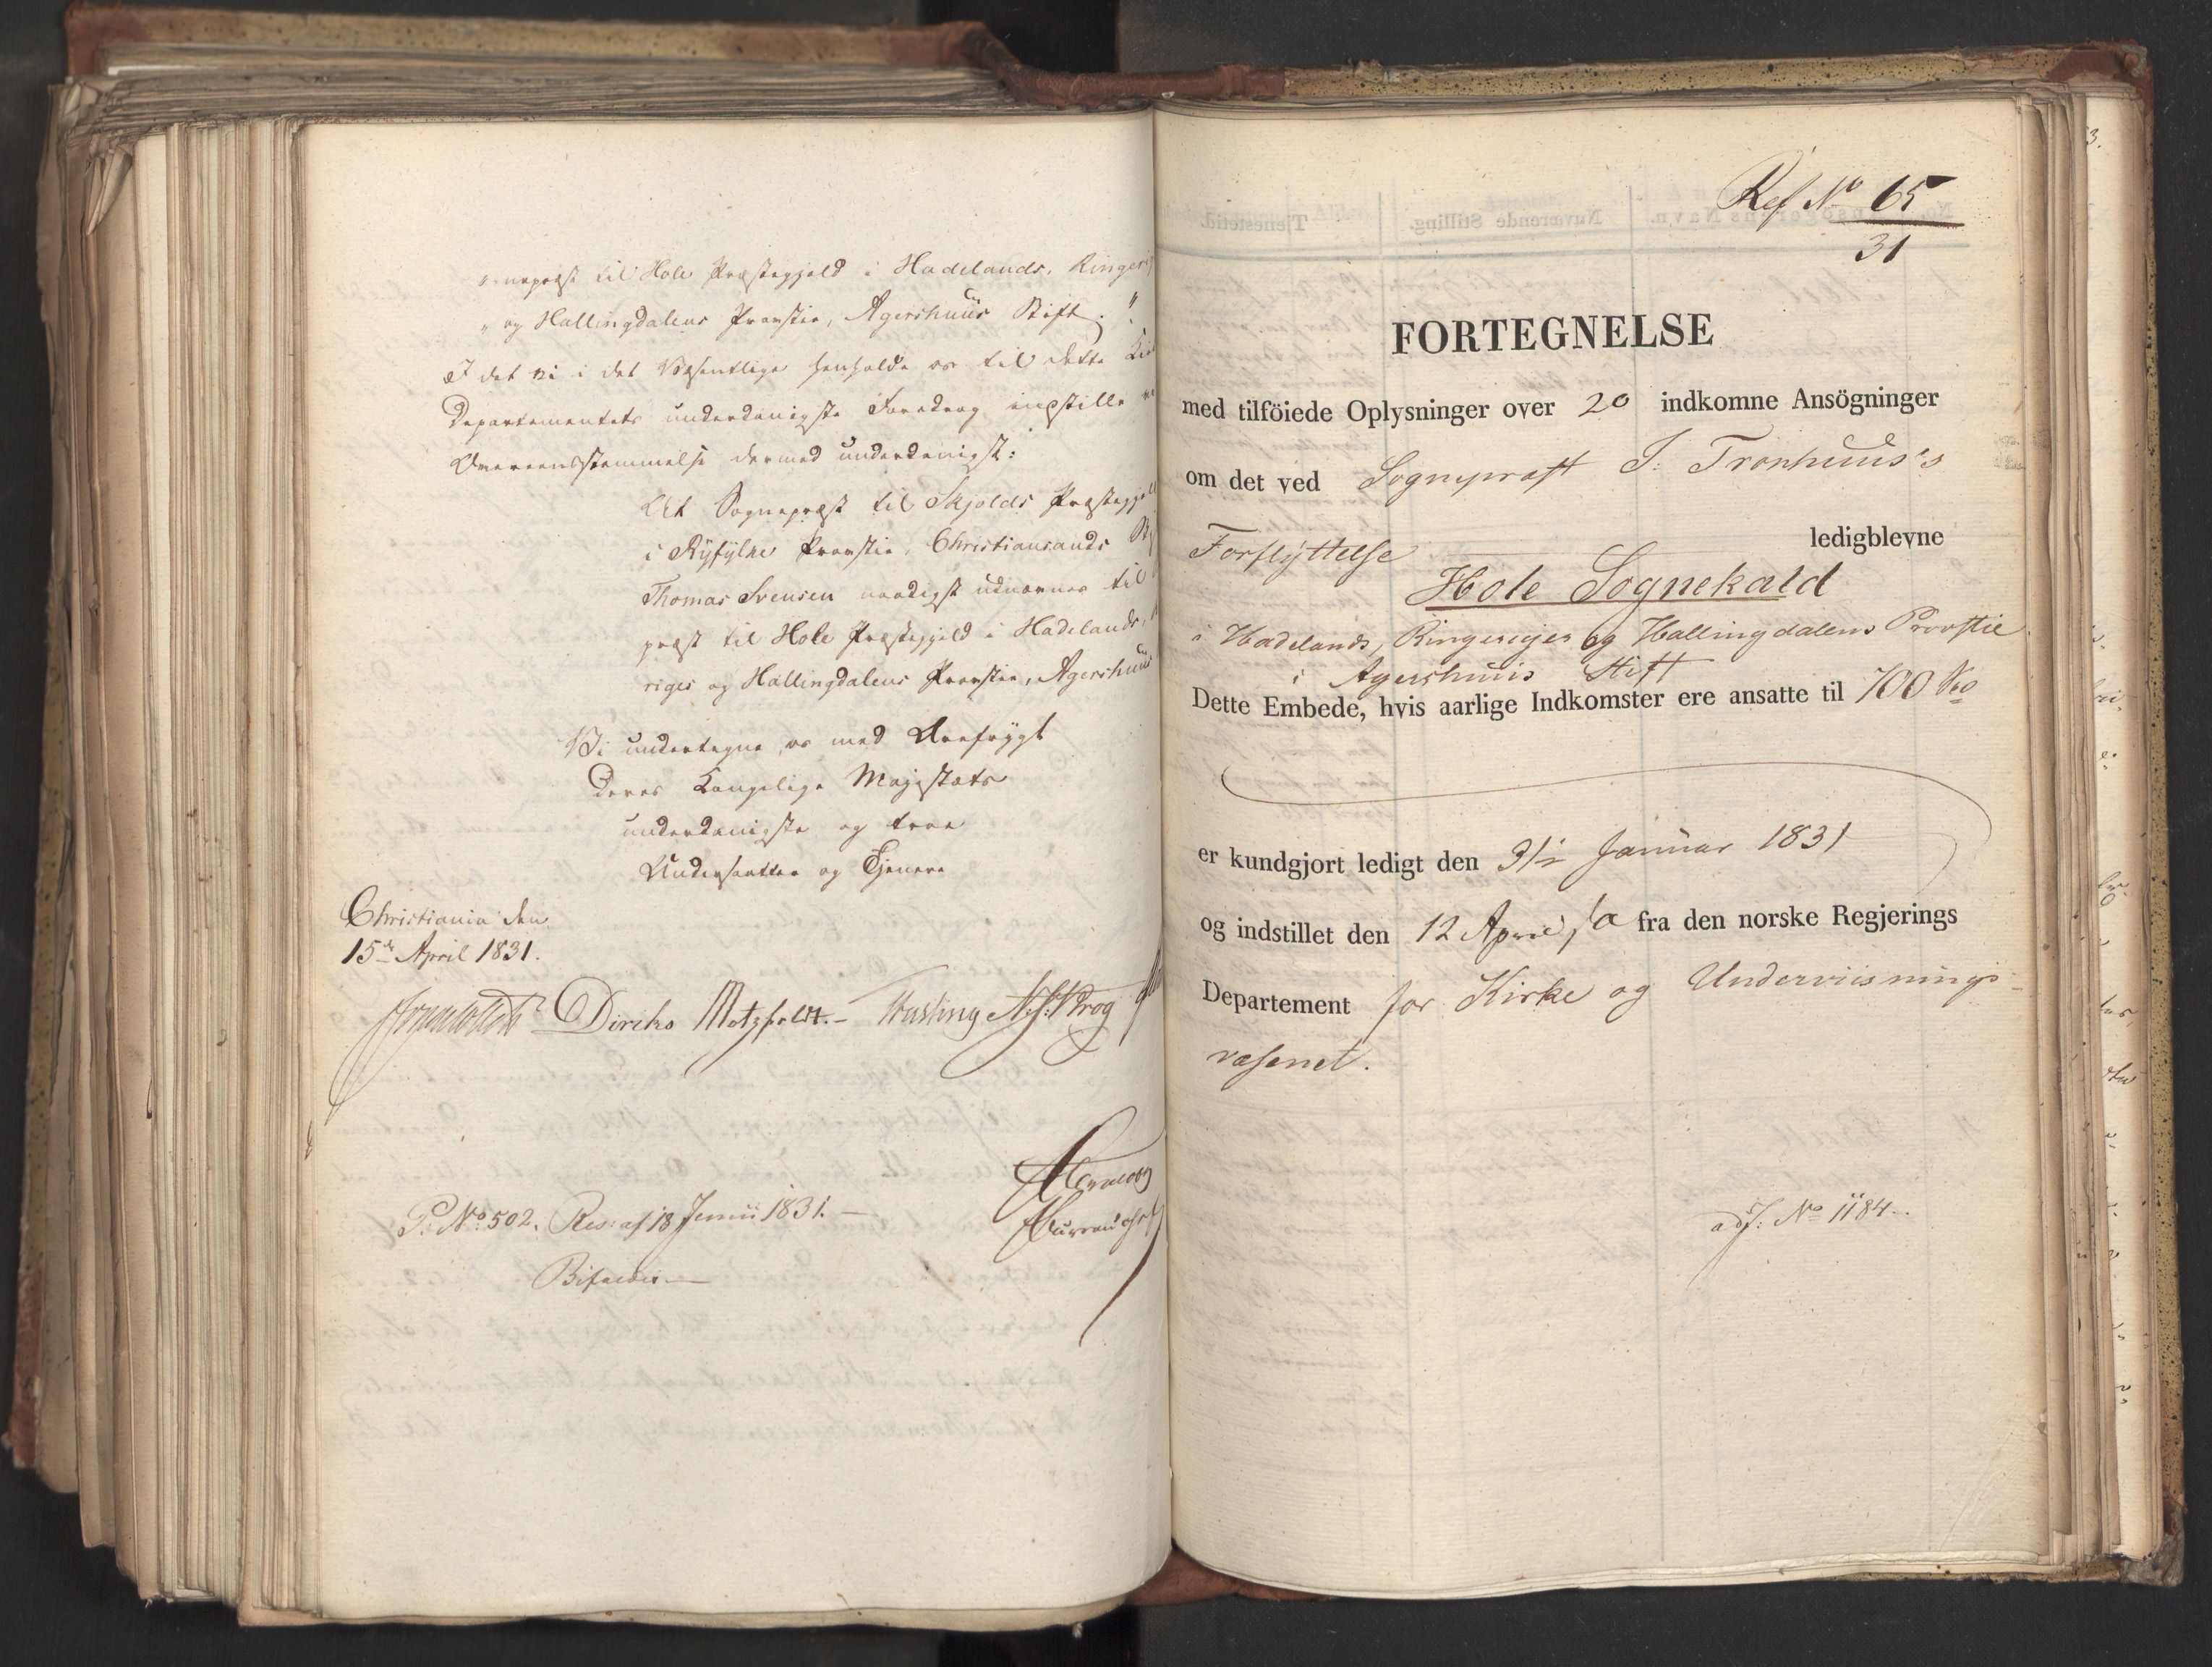 "nepræst til Hole Præstegjeld i Hadelands, Ringerig
"og Hallingdalens Provstie, Agershuus Stift."
I det vi i det Væsentlige henholde os til dette
Departementets underdanigste Foredrag indstille
Overeensstemmelse dermed underdanigst:
At Sognepræst til Skjolds Præstegjeld
i Ryfylke Provstie, Christiansands
Thomas Svensen naadigst udnævnes til
præst til Hole Præstegjeld i Hadelands,
riges og Hallingdalens Provstie, Agershuus
Vi undertegne os med Ærefrygt
Deres Kongelige Majestæts
underdanigste og troe
Undersaatter og Tjenere
Christiania den
15de April 1831.
Diriks Motzfeldt.- Fasting N. J. Krog
P: No 502. Res: af 18 Junii 1831. —
Bifaldes —
Ref No 65
31
FORTEGNELSE
med tilföiede Oplysninger over 20 indkomne Ansögninger
om det ved Sognepræst I: Tronhuus's
Forflyttelse ledigblevne
Hole Sognekald
i Hadelands, Ringeriges og Hallingdalens Provstie
i Agershuus Stift
Dette Embede, hvis aarlige Indkomster ere ansatte til 700
er kundgjort ledigt den 31te Januar 1831
og indstillet den 12 April fra den norske Regjerings
Departement for Kirke og Underviisnings-
væsenet.
ad J: No 1184.